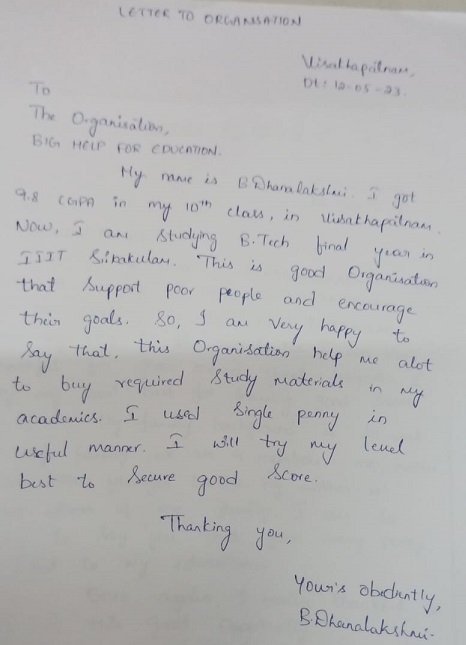 LETTER TO ORGANISATION
Visakhapatnam,
Dt: 12-05-23.
To
The Organisation,
BIG HELP FOR EDUCATION.
My name is B.Dhanalakshmi. I got
9.8 CGPA in my 10th class, in Visakhapatnam.
Now, I am studying B.Tech final year in
IIIT Srikakulam. This is good Organisation
that support poor people and encourage
their goals. So, I am very happy to
say that, this Organisation help me alot
to buy required study materials in my
academics. I used single penny in
useful manner. I will try my level
best to secure good score.
Thanking you,
Your's obediently,
B.Dhanalakshmi.